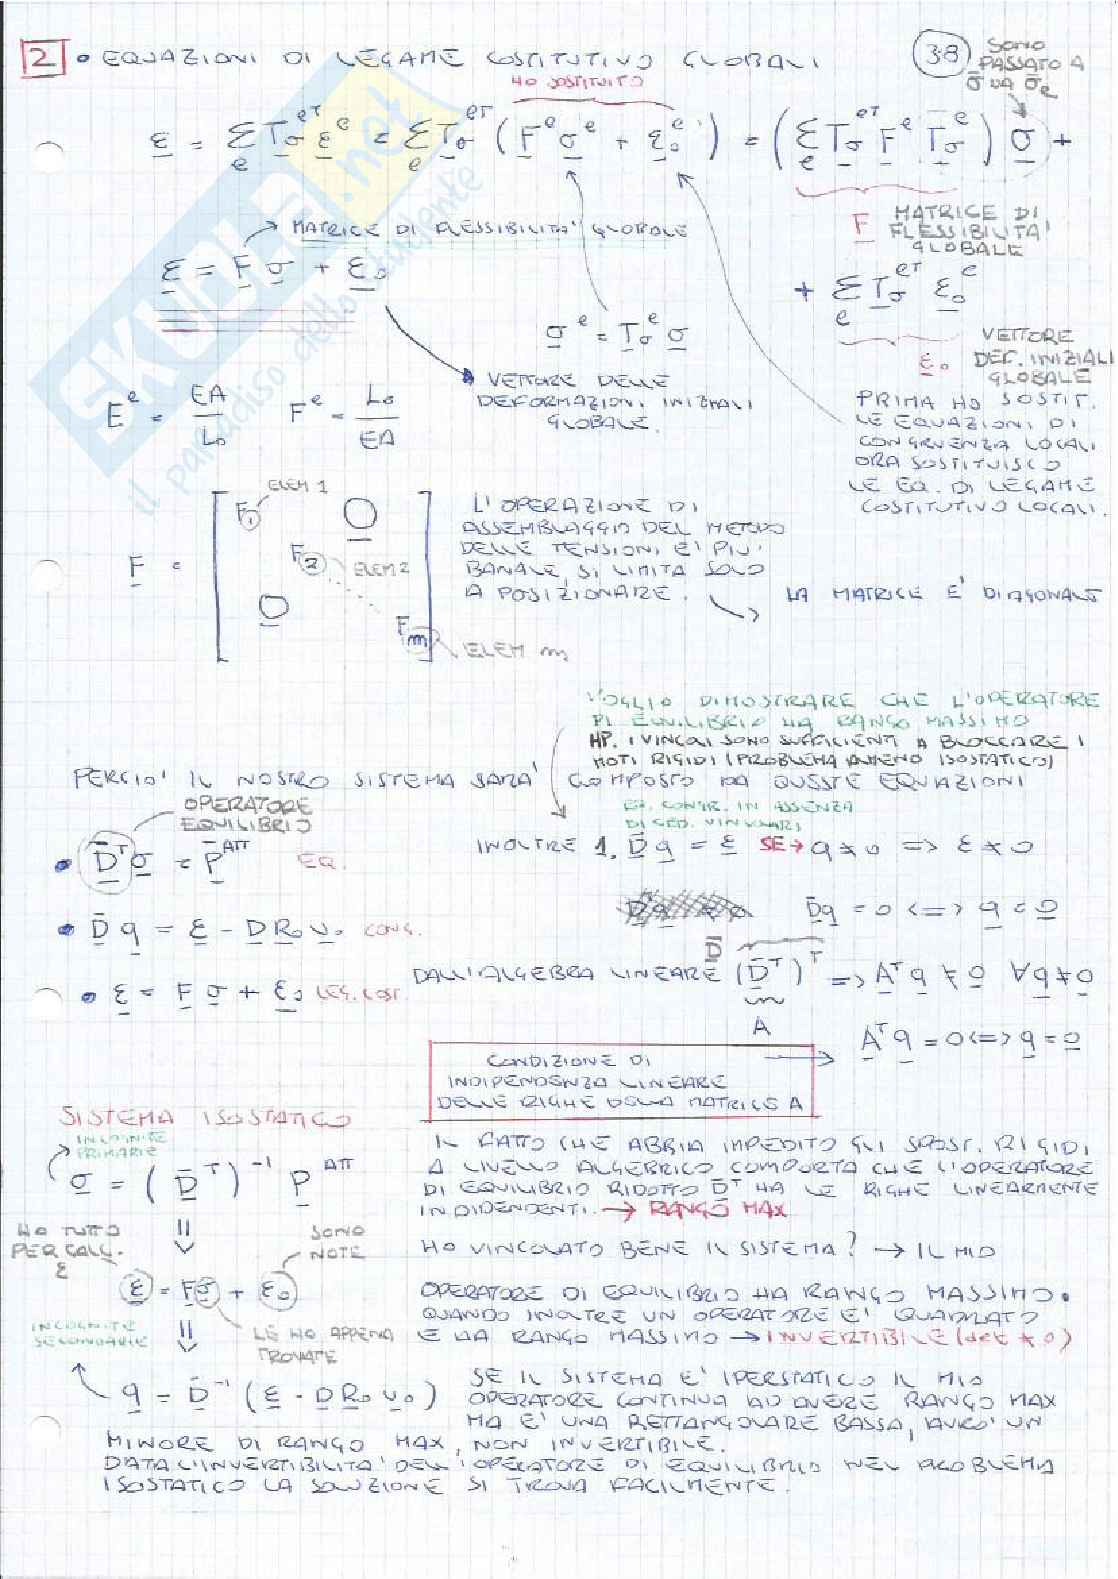 2 • EQUAZIONI DI LEGAME COSTITUTIVO GLOBALI
38
SONO PASSATO A σ̄ DA σ̄e
HO SOSTITUITO
ε = Σe Tσ^eT ε^e = Σe Tσ^eT (F^e σ^e + ε₀^e) = (Σe Tσ^eT F^e Tσ^e) σ +
F MATRICE DI FLESSIBILITA' GLOBALE
MATRICE DI FLESSIBILITA' GLOBALE
ε = F σ + ε₀
+ Σe Tσ^eT ε₀^e
σ^e = Tσ^e σ
ε₀ VETTORE DEF. INIZIALI GLOBALE
VETTORE DELLE
DEFORMAZIONI INIZIALI
GLOBALE.
E^e = EA/L₀ F^e = L₀/EA
PRIMA HO SOSTIT.
LE EQUAZIONI DI
CONGRUENZA LOCALI
ORA SOSTITUISCO
LE EQ. DI LEGAME
COSTITUTIVO LOCALI.
F = [F1 F2 Fm]
O
O
ELEM 1
ELEM 2
ELEM m
L'OPERAZIONE DI
ASSEMBLAGGIO DEL METODO
DELLE TENSIONI E' PIU'
BANALE, SI LIMITA SOLO
A POSIZIONARE.
LA MATRICE E' DIAGONALE
VOGLIO DIMOSTRARE CHE L'OPERATORE
DI EQUILIBRIO HA RANGO MASSIMO
HP. I VINCOLI SONO SUFFICIENTI A BLOCCARE I
MOTI RIGIDI (PROBLEMA ALMENO ISOSTATICO)
PERCIO' IL NOSTRO SISTEMA SARA' COMPOSTO DA QUESTE EQUAZIONI
OPERATORE
EQUILIBRIO
EQ. CONGR. IN ASSENZA
DI CED. VINCOLARI
• D̄^T σ = P̄^ATT EQ.
INOLTRE 1. D̄ q = ε SE → q ≠ 0 => ε ≠ 0
• D̄ q = ε - D R₀ v₀ CONG.
D̄q = 0 <=> q = 0
• ε = F σ + ε₀ LEG. COST.
D̄
DALL'ALGEBRA LINEARE (D̄^T)^T => A^T q ≠ 0 ∀q ≠ 0
A
A^T q = 0 <=> q = 0
CONDIZIONE DI
INDIPENDENZA LINEARE
DELLE RIGHE DELLA MATRICE A
SISTEMA ISOSTATICO
INCOGNITE
PRIMARIE
σ = (D̄^T)^-1 P^ATT
IL FATTO CHE ABBIA IMPEDITO GLI SPOST. RIGIDI
A LIVELLO ALGEBRICO COMPORTA CHE L'OPERATORE
DI EQUILIBRIO RIDOTTO D̄^T HA LE RIGHE LINEARMENTE
INDIPENDENTI. → RANGO MAX
HO TUTTO
PER CALC.
ε
SONO
NOTE
HO VINCOLATO BENE IL SISTEMA? → IL MIO
ε = Fσ + ε₀
OPERATORE DI EQUILIBRIO HA RANGO MASSIMO.
QUANDO INOLTRE UN OPERATORE E' QUADRATO
E HA RANGO MASSIMO → INVERTIBILE (det ≠ 0)
INCOGNITE
SECONDARIE
LE HO APPENA
TROVATE
q = D̄^-1 (ε - D R₀ v₀)
SE IL SISTEMA E' IPERSTATICO IL MIO
OPERATORE CONTINUA AD AVERE RANGO MAX
MA E' UNA RETTANGOLARE BASSA, AVRO' UN
MINORE DI RANGO MAX, NON INVERTIBILE.
DATA L'INVERTIBILITA' DELL'OPERATORE DI EQUILIBRIO NEL PROBLEMA
ISOSTATICO LA SOLUZIONE SI TROVA FACILMENTE.
SKUOLA.net
il paradiso dello studente